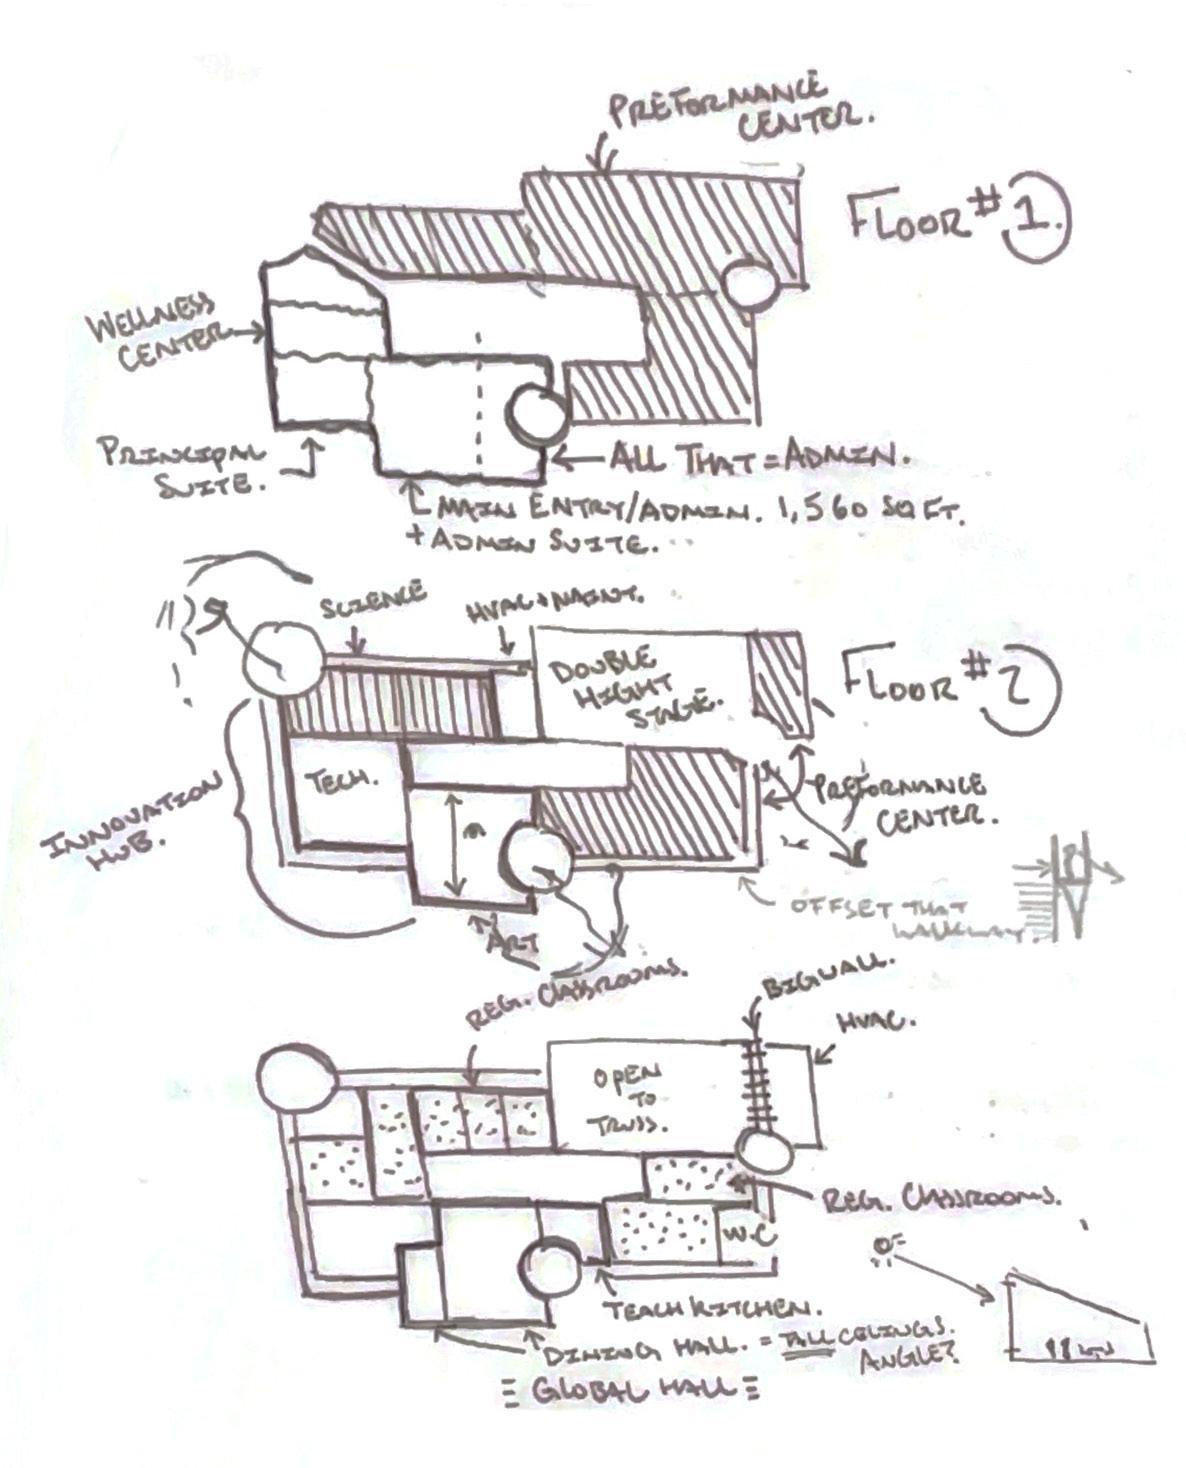 PREFORMANCE
CENTER.
FLOOR #1.
WELLNESS
CENTER
PRINCIPAL
SUITE.
ALL THAT = ADMIN.
MAIN ENTRY/ADMIN. 1,560 SQ FT.
+ ADMIN SUITE.
SCIENCE
HVAC + MAINT.
DOUBLE
HIGHT
STAGE.
FLOOR #2
TECH.
INNOVATION
HUB.
PREFORMANCE
CENTER.
OFFSET THAT
WALKWAY.
ART
REG. CLASSROOMS.
BIG WALL.
HVAC.
OPEN
TO
TRUSS.
REG. CLASSROOMS.
W.C
TEACH KITCHEN.
DINING HALL. = TALL CELINGS.
ANGLE?
GLOBAL HALL